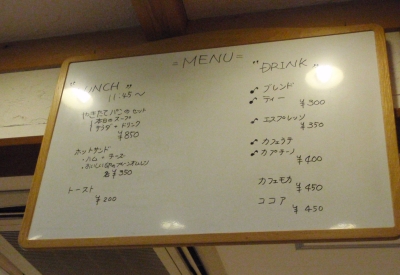 = MENU =
"LUNCH"
11:45〜
やきたてパンのセット
本日のスープ
サラダ + ドリンク
¥850
ホットサンド
・ハム + チーズ
各 ¥350
トースト
¥200
"DRINK"
♪ ブレンド
♪ ティー
¥300
♪ エスプレッソ
¥350
♪ カフェラテ
♪ カプチーノ
¥400
カフェモカ
¥450
ココア
¥450